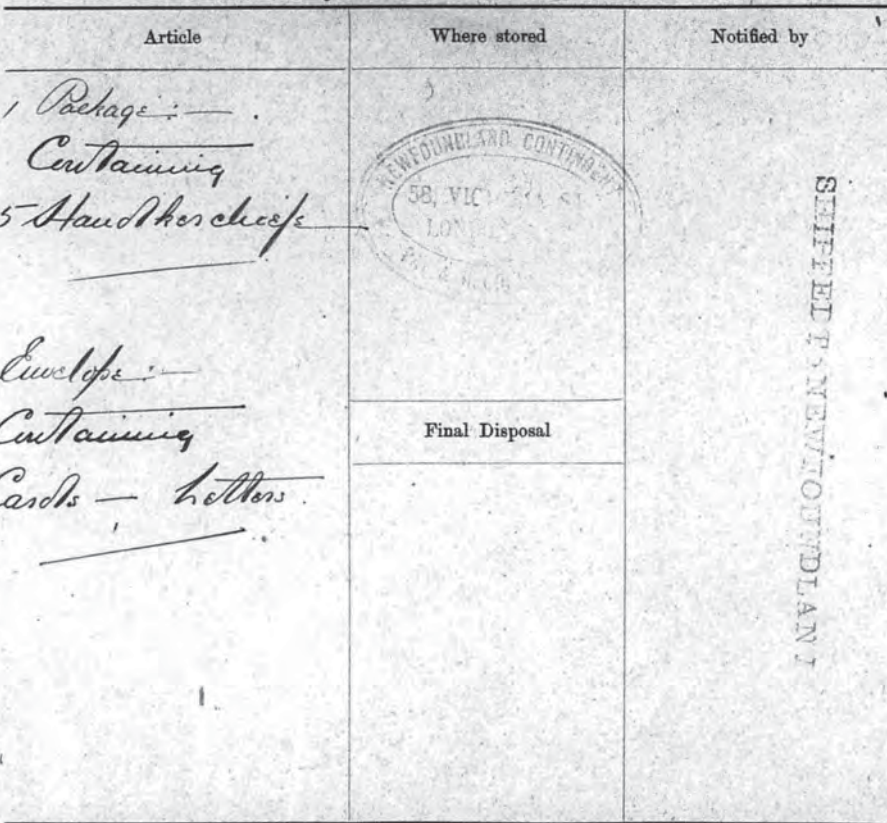 Article
Where stored
Notified by
1 Package:—
Containing
5 Handkerchiefs
Envelope:—
Containing
Cards — Letters
NEWFOUNDLAND CONTINGENT
58, VIC
LOND
PAY &
Final Disposal
SHIPPED NEWFOUNDLAND